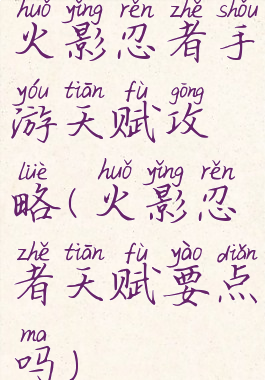 huǒ yǐng rěn zhě shǒu
火影忍者手
yóu tiān fù gōng
游天赋攻
lüè huǒ yǐng rěn
略(火影忍
zhě tiān fù yào diǎn
者天赋要点
ma
吗)